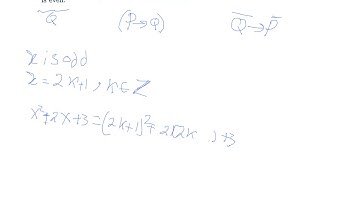 is even.
Q (P→Q) Q̅→P̅
x is odd
x = 2k+1, k∈Z
x²+2x+3=(2k+1)²+2(2k ) +3